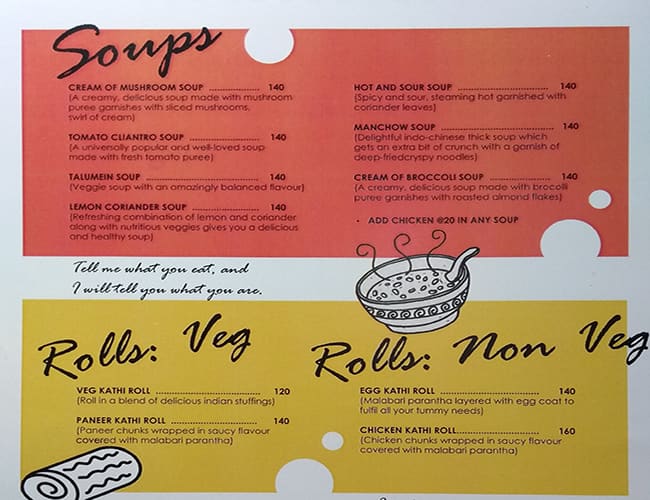 Soups
CREAM OF MUSHROOM SOUP .................. 140
(A creamy, delicious soup made with mushroom
puree garnishes with sliced mushrooms,
swirl of cream)
TOMATO CLIANTRO SOUP ........................ 140
(A universally popular and well-loved soup
made with fresh tomato puree)
TALUMEIN SOUP ........................................ 140
(Veggie soup with an amazingly balanced flavour)
LEMON CORIANDER SOUP ......................... 140
(Refreshing combination of lemon and coriander
along with nutritious veggies gives you a delicious
and healthy soup)
HOT AND SOUR SOUP .................................... 140
(Spicy and sour, steaming hot garnished with
coriander leaves)
MANCHOW SOUP ........................................ 140
(Delightful indo-chinese thick soup which
gets an extra bit of crunch with a garnish of
deep-friedcryspy noodles)
CREAM OF BROCCOLI SOUP ......................... 140
(A creamy, delicious soup made with brocolli
puree garnishes with roasted almond flakes)
- ADD CHICKEN @20 IN ANY SOUP
Tell me what you eat, and
I will tell you what you are.
Rolls: Veg
VEG KATHI ROLL ..................................... 120
(Roll in a blend of delicious indian stuffings)
PANEER KATHI ROLL ............................... 140
(Paneer chunks wrapped in saucy flavour
covered with malabari parantha)
Rolls: Non Veg
EGG KATHI ROLL ..................................... 140
(Malabari parantha layered with egg coat to
fulfil all your tummy needs)
CHICKEN KATHI ROLL............................... 160
(Chicken chunks wrapped in saucy flavour
covered with malabari parantha)